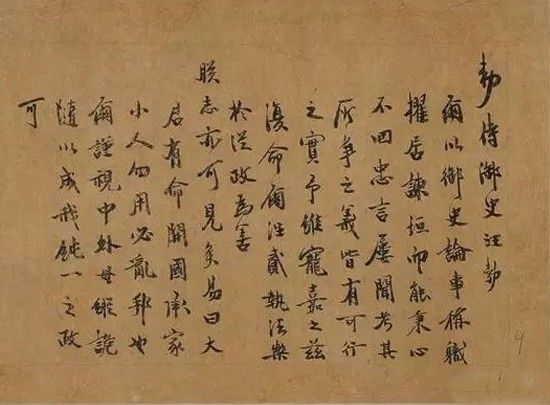 勅侍御史汪勃
爾以御史論事稱職
擢居諫垣而能秉心
不回忠言屢聞考其
所爭之義皆有可行
之實予維寵嘉之茲
復命爾往貳執法樂
於從政為善
朕志亦可見矣易曰大
君有命開國承家
小人勿用必亂邦也
爾謹視中外毋縱詭
隨以成我純一之政
可
9